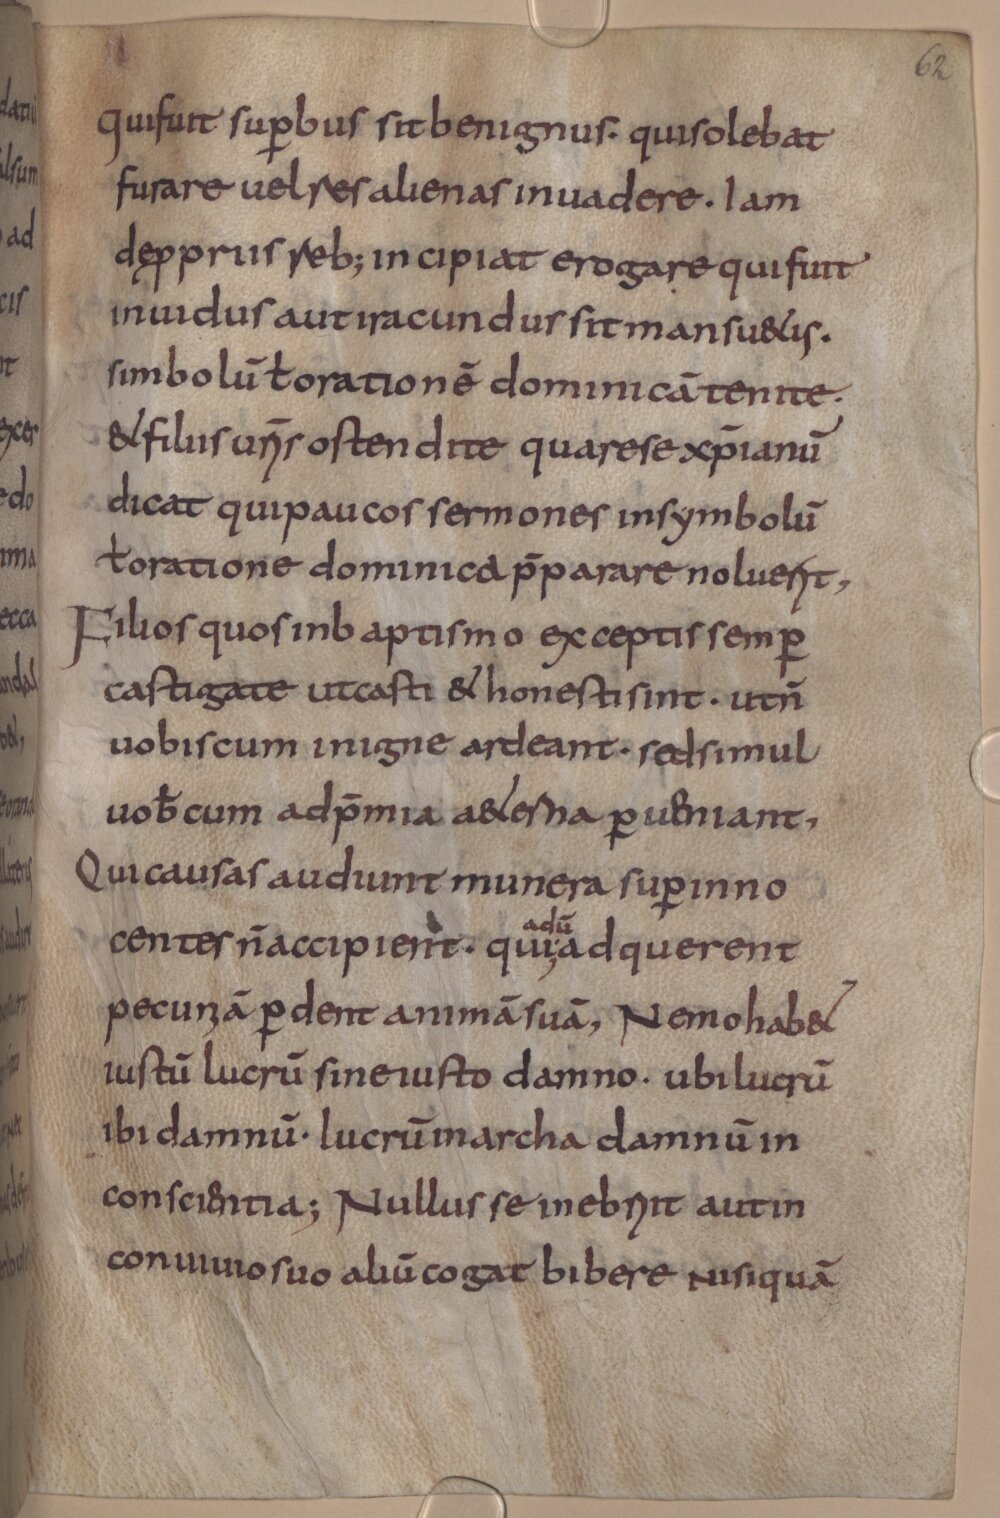 62
quifuit sup̄bus sit benignus. quisolebat
furare uel res alienas inuadere. Iam
dęppriis reb; incipiat erogare quifuit
inuidus aut iracundus sit mansu&is.
simbolū ƚ orationē dominicā tenite.
& filiis urīs ostendite quare se xp̄ianū
dicat qui paucos sermones in symbolū
ƚ oratione dominica p̄parare noluerit,
Filios quos in baptismo exceptis semꝑ
castigate ut casti & honesti sint. ut n̄
uobiscum in igne ardeant. sed simul
uob̄cum ad p̄mia a&erna ꝑueniant,
Qui causas audiunt munera suꝑ inno
centes n̄ accipient. quia adquerent
adū
pecuniā ꝑdent animā suā, Nemo hab&
iustū lucrū sine iusto damno. ubi lucrū
ibi damnū. lucrū in archa damnū in
conscientia; Nullus se inebriit aut in
conuiuio suo aliū cogat bibere nisi quā